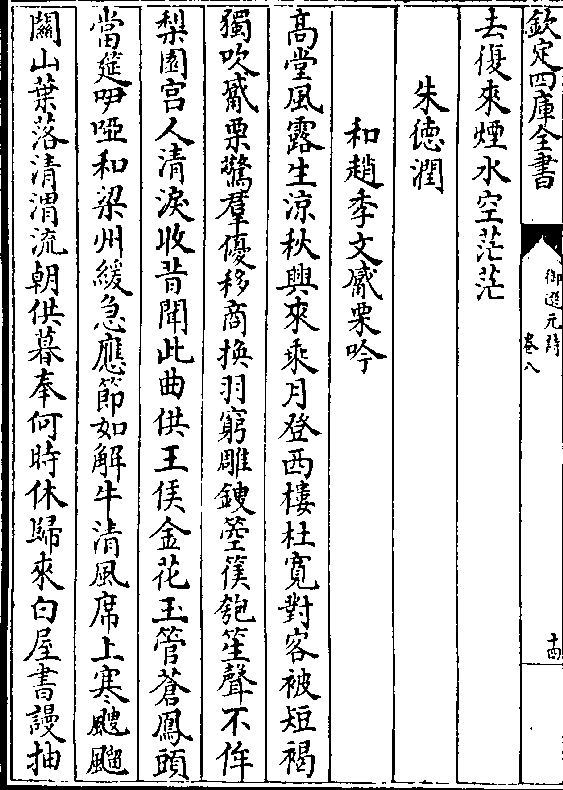 欽定四庫全書
御選元詩
卷八
十四
去復來煙水空茫茫
朱德潤
和趙季文觱栗吟
高堂風露生涼秋興來乘月登西樓杜寬對客被短褐
獨吹觱栗驚羣優移商換羽窮雕鎪箜篌匏笙聲不侔
梨園宮人清淚收昔聞此曲供王侯金花玉管蒼鳳頭
當筵咿啞和梁州緩急應節如解牛清風席上寒颼飀
關山葉落清渭流朝供暮奉何時休歸來白屋書謾抽